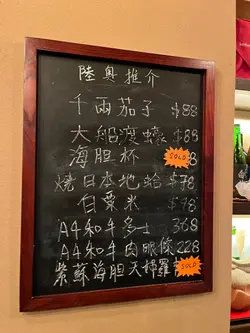 陸奧推介
千両茄子 $88
大船渡蠔 $88
海胆杯 8
SOLD
燒日本地蛤 $78
白粟米 $78
A4和牛多士 368
A4和牛肉眼條 228
紫蘇海胆天婦羅
SOLD